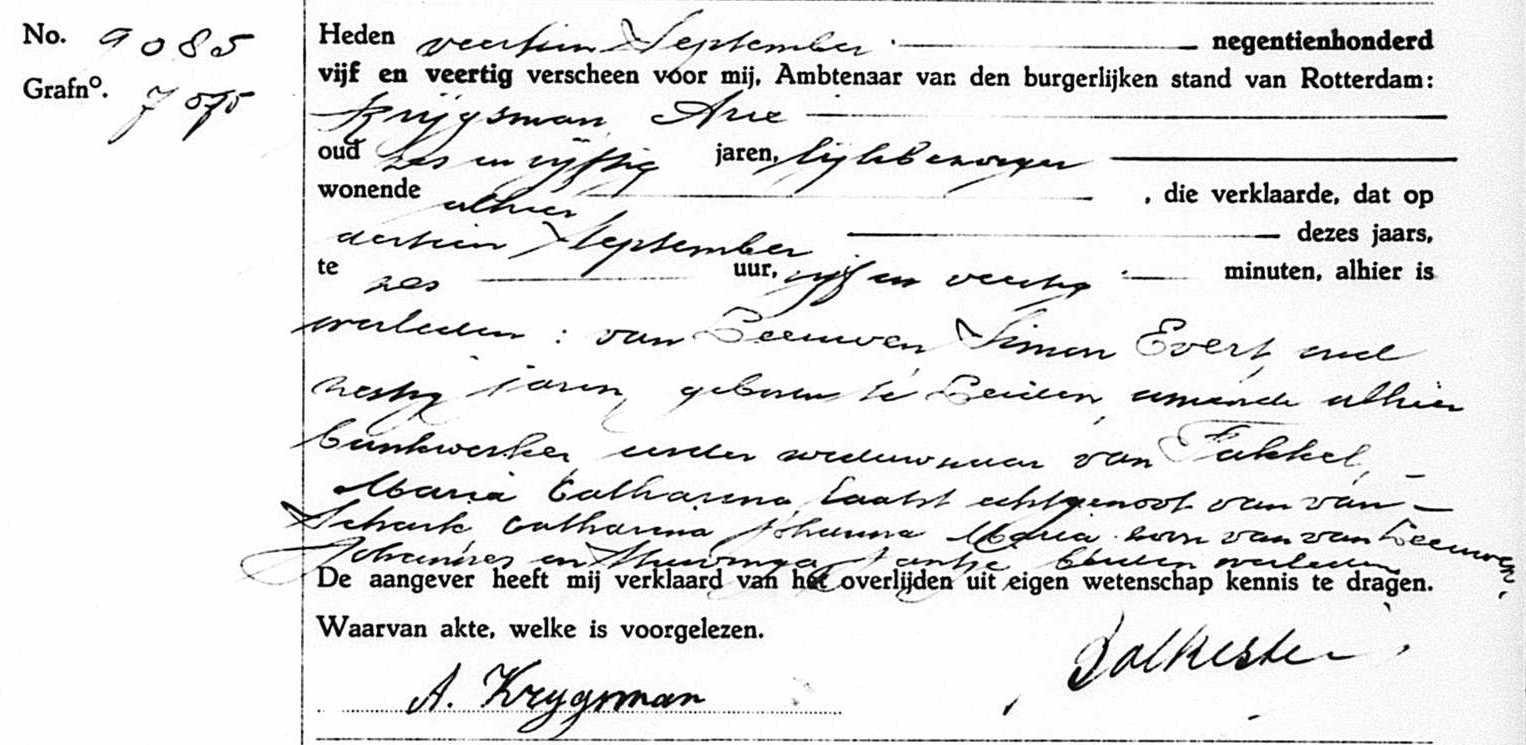 No. 9085
Grafnº.
Heden veertien September negentienhonderd
vijf en veertig verscheen voor mij, Ambtenaar van den burgerlijken stand van Rotterdam:
Krijgsman Arie
oud zes en vijftig jaren, lijkbezorger
wonende alhier, die verklaarde, dat op
dertien September dezes jaars,
te zes uur, vijf en veertig minuten, alhier is
overleden: van Leeuwen, Simon Evert, oud
zestig jaren, geboren te Leiden, wonende alhier
bankwerker, eerder weduwnaar van Fakkel,
Maria Catharina, laatst echtgenoot van van
Schark, Catharina Johanna Maria. zoon van van Leeuwen,
Johannes en Jantje, beiden overleden.
De aangever heeft mij verklaard van het overlijden uit eigen wetenschap kennis te dragen.
Waarvan akte, welke is voorgelezen.
A. Krygsman